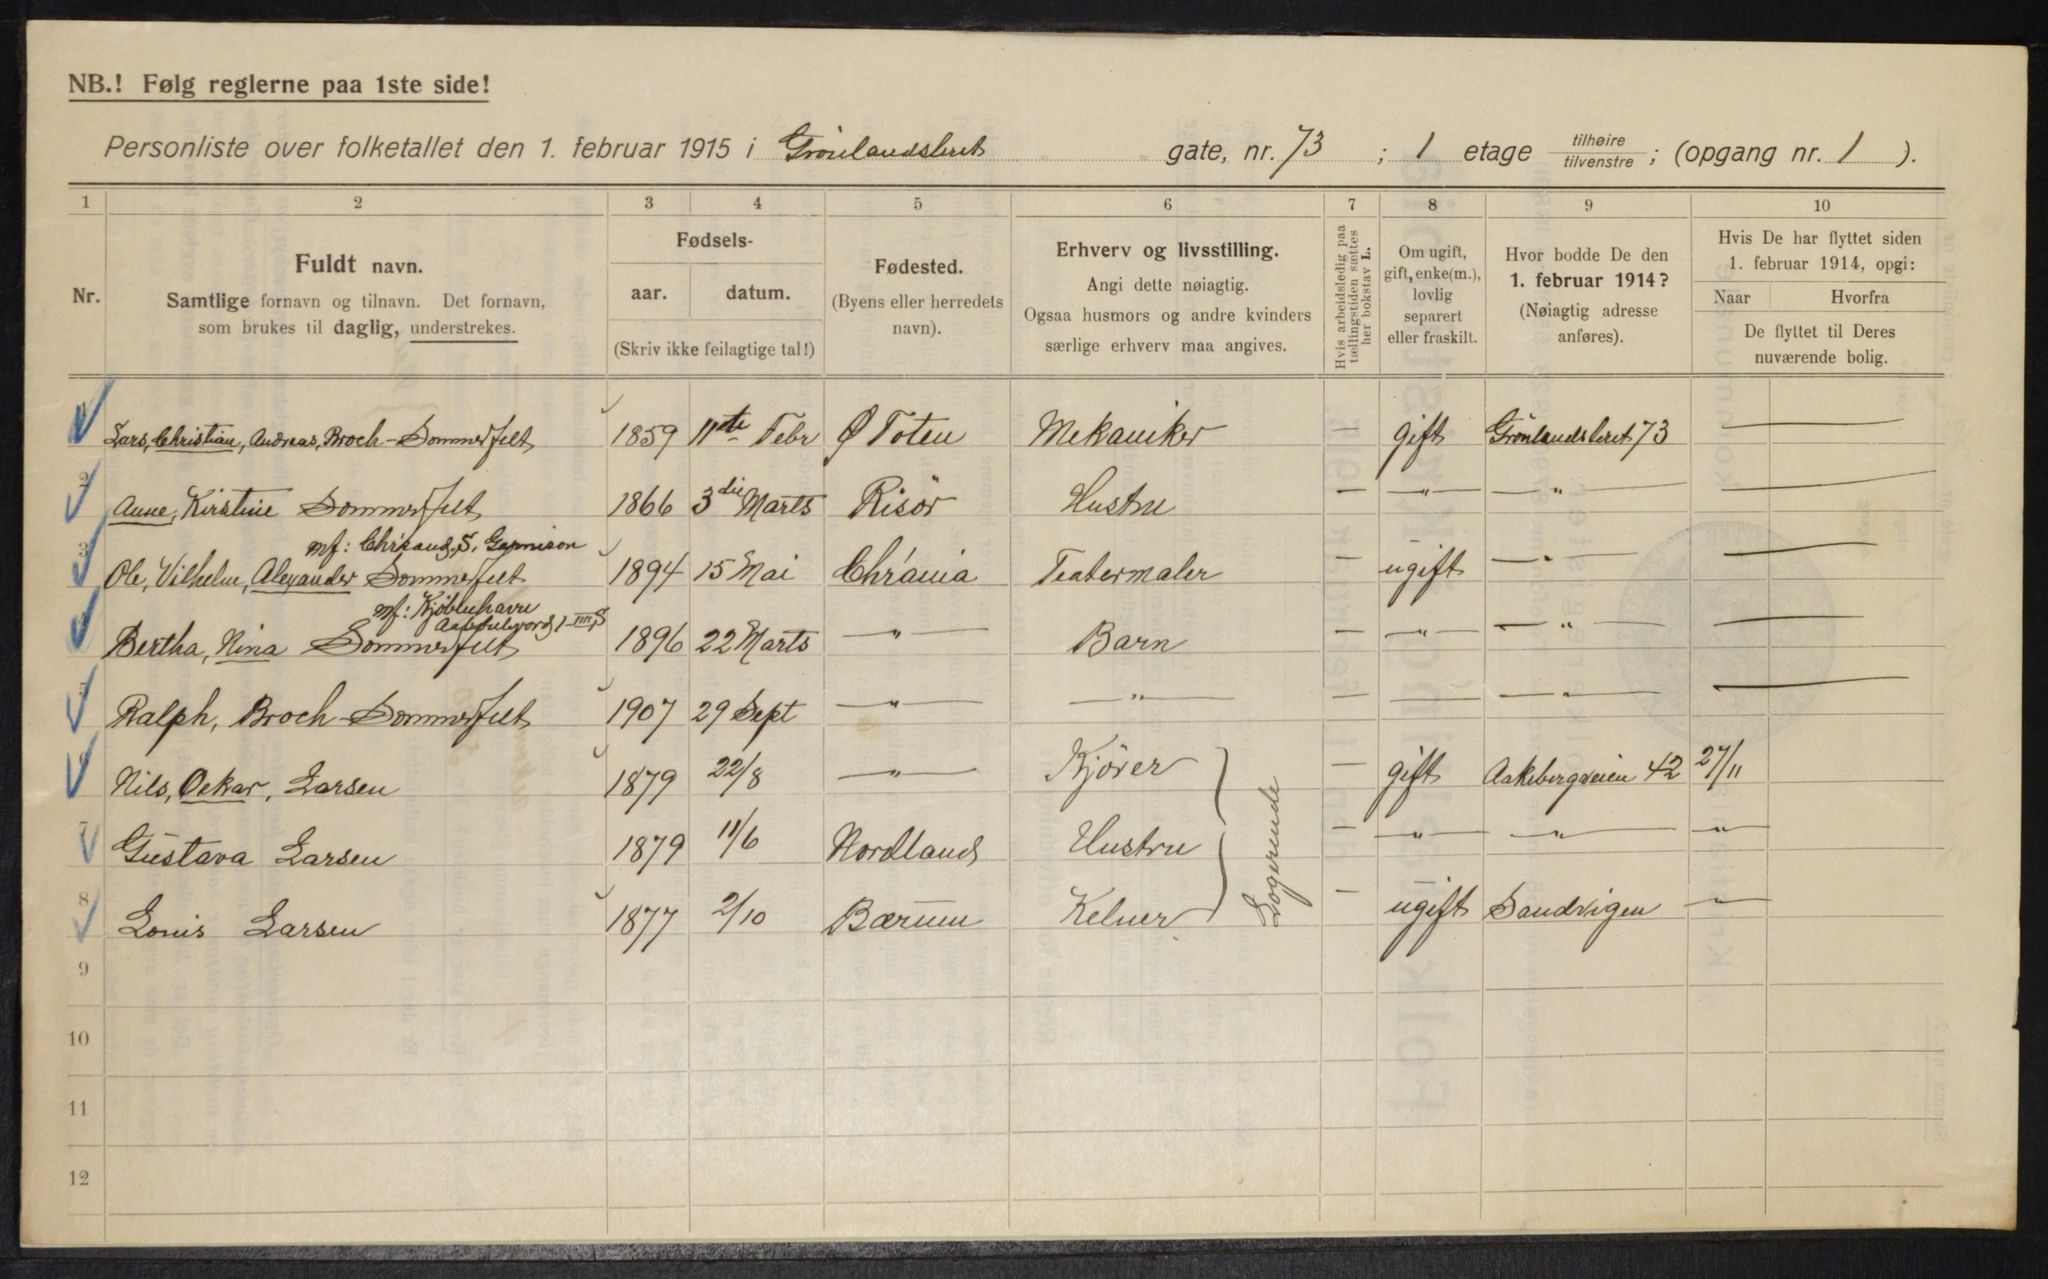 NB.! Følg reglerne paa 1ste side!
Personliste over folketallet den 1. februar 1915 i Grönlandsleret gate, nr. 73 ; 1 etage tilhøire tilvenstre ; (opgang nr. 1 ).
1 2 3 4 5 6 7 8 9 10
Nr.
Fuldt navn.
Samtlige fornavn og tilnavn. Det fornavn,
som brukes til daglig, understrekes.
Fødsels-
aar. datum.
(Skriv ikke feilagtige tal!)
Fødested.
(Byens eller herredets
navn).
Erhverv og livsstilling.
Angi dette nøiagtig.
Ogsaa husmors og andre kvinders
særlige erhverv maa angives.
Hvis arbeidsledig paa
tællingstiden sættes
her bokstav L.
Om ugift,
gift, enke(m.),
lovlig
separert
eller fraskilt.
Hvor bodde De den
1. februar 1914?
(Nøiagtig adresse
anføres).
Hvis De har flyttet siden
1. februar 1914, opgi:
Naar Hvorfra
De flyttet til Deres
nuværende bolig.
1 Lars, Christian, Andreas, Broch-Sommerfelt 1859 11te Febr Ø Toten Mekaniker — gift Grönlandsleret 73 —
2 Anne, Kirstine Sommerfelt 1866 3die Marts Risör Hustru — —"— —"— —
mf: Chrsand S. Garnison
3 Ole, Vilhelm, Alexander Sommerfelt 1894 15 Mai Chr'ania Teatermaler — ugift —"— —
mf: Kjöbenhavn
4 Bertha, Nina Sommerfelt 1896 22 Marts —"— Barn — —"— —"— —
5 Ralph, Broch-Sommerfelt 1907 29 Sept —"— —"— — — —"— —
6 Nils, Oskar, Larsen 1879 22/8 —"— Kjörer — gift Aakebergveien 42 27/11
7 Gustava Larsen 1879 11/6 Nordland Hustru — —"— —"— —"—
8 Louis Larsen 1877 2/10 Bærum Kelner — ugift Sandvigen —"—
Logerende
9
10
11
12